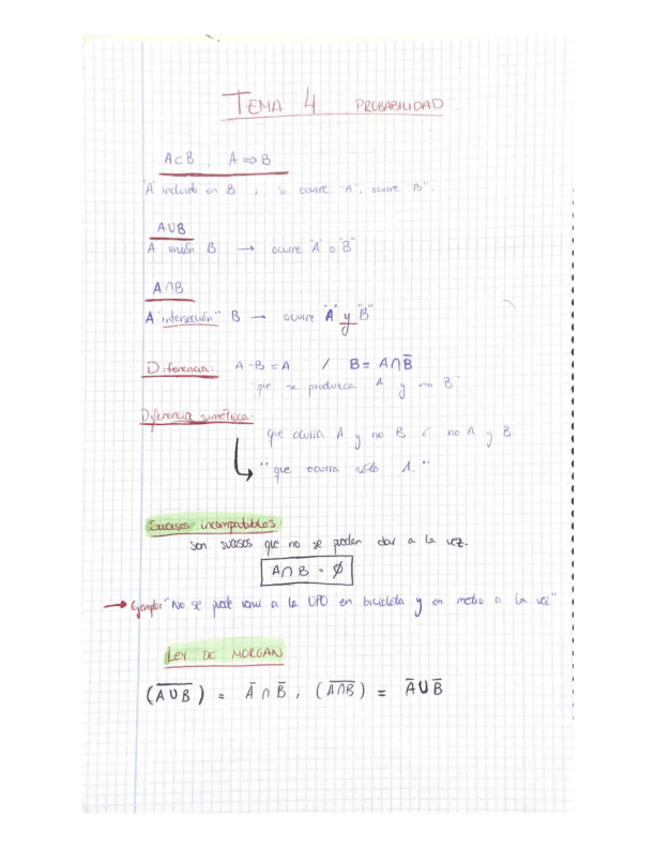 TEMA 4 PROBABILIDAD
A⊂B , A ⇒ B
"A" incluido en B , si ocurre "A", ocurre "B".
A∪B
A unión B → ocurre "A" o "B"
A∩B
A "intersección" B → ocurre "A" y "B"
Diferencia: A-B = A / B = A∩B̅
"que se produzca A y no B"
Diferencia simétrica:
que ocurra A y no B ó no A y B.
"que ocurra sólo 1."
Sucesos incompatibles
son sucesos que no se pueden dar a la vez.
A∩B = ∅
→ Ejemplo: "No se puede venir a la UPO en bicicleta y en metro a la vez"
LEY DE MORGAN
(A̅ ̅∪̅ ̅B̅) = A̅ ∩ B̅ ; (A̅∩̅B̅) = A̅ ∪ B̅